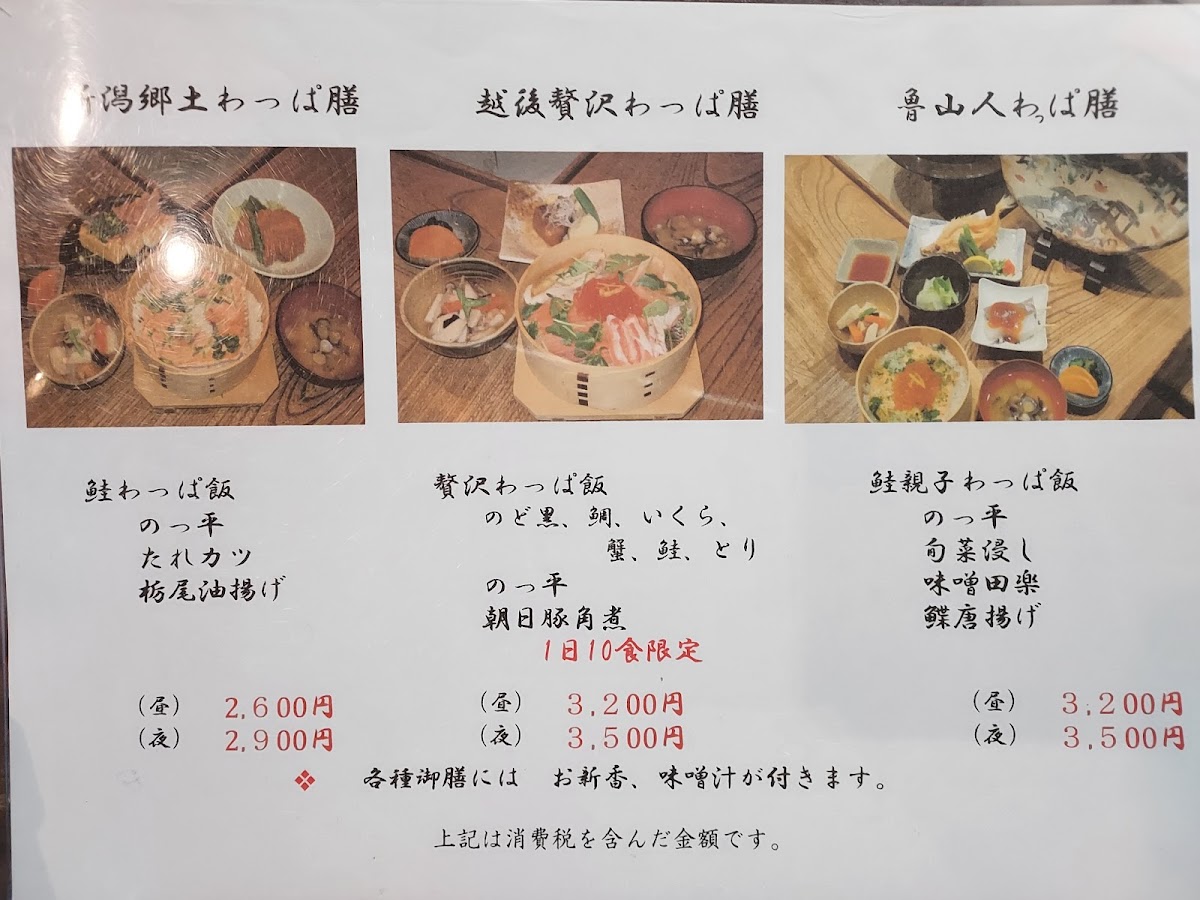 新潟郷土わっぱ膳
越後贅沢わっぱ膳
魯山人わっぱ膳
鮭わっぱ飯
のっ平
たれカツ
栃尾油揚げ
(昼) 2,600円
(夜) 2,900円
贅沢わっぱ飯
のど黒、鯛、いくら、
蟹、鮭、とり
のっ平
朝日豚角煮
1日10食限定
(昼) 3,200円
(夜) 3,500円
鮭親子わっぱ飯
のっ平
旬菜浸し
味噌田楽
鰈唐揚げ
(昼) 3,200円
(夜) 3,500円
❖ 各種御膳には お新香、味噌汁が付きます。
上記は消費税を含んだ金額です。